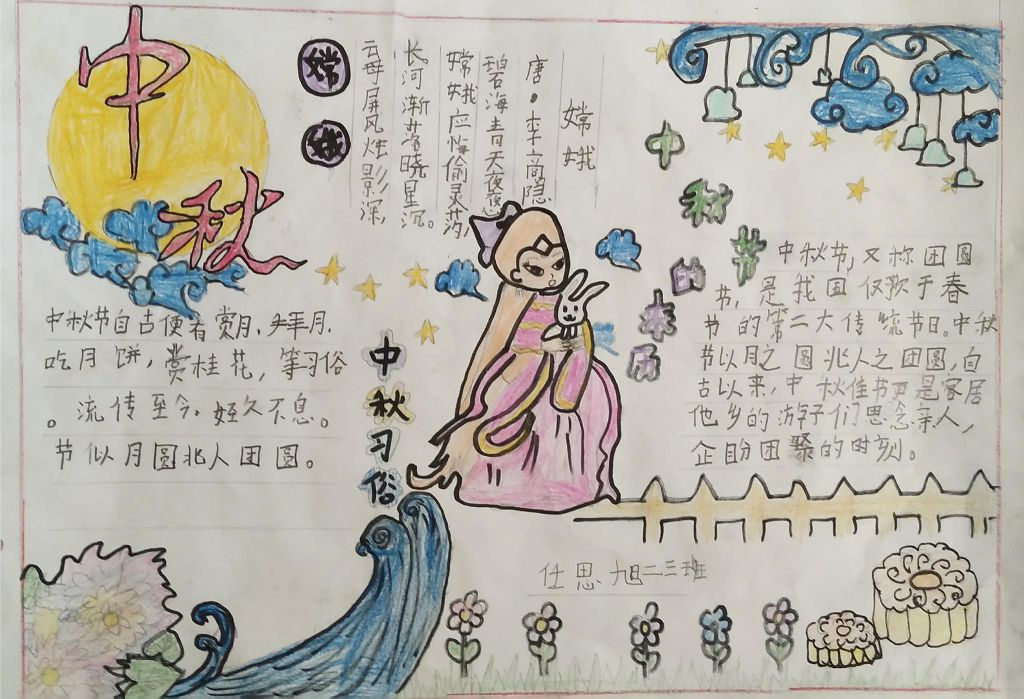 中秋
嫦娥
嫦娥
唐·李商隐
云母屏风烛影深
长河渐落晓星沉。
嫦娥应悔偷灵药
碧海青天夜夜
中秋节自古便有赏月、拜月、
吃月饼,赏桂花,等习俗
。流传至今。经久不息。
节似月圆兆人团圆。
中秋习俗
中秋节的来历
中秋节,又称团圆
节,是我国仅歌于春
节的第二大传统节日。中秋
节以月之圆兆人之团圆,自
古以来,中秋佳节更是客居
他乡的游子们思念亲人,
企盼团聚的时刻。
任思旭二三班